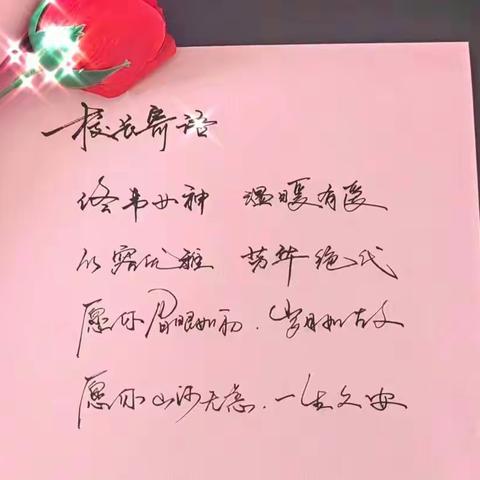 校长寄语
女神 温暖有爱
从容优雅 芳华绝代
愿你眉眼如初，岁月如故
愿你山河无恙，一生久安